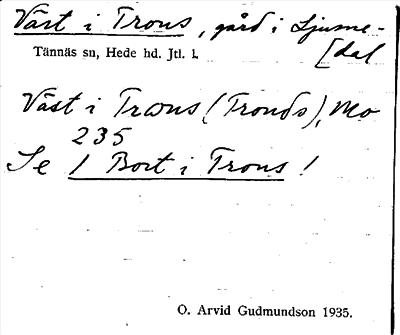 Väst i Trons, gård i Ljusne-
[dal
Tännäs sn, Hede hd. Jtl. l.
Väst i Trons (Tronds), Mo
235
Se 1 Bort i Trons!
O. Arvid Gudmundson 1935.